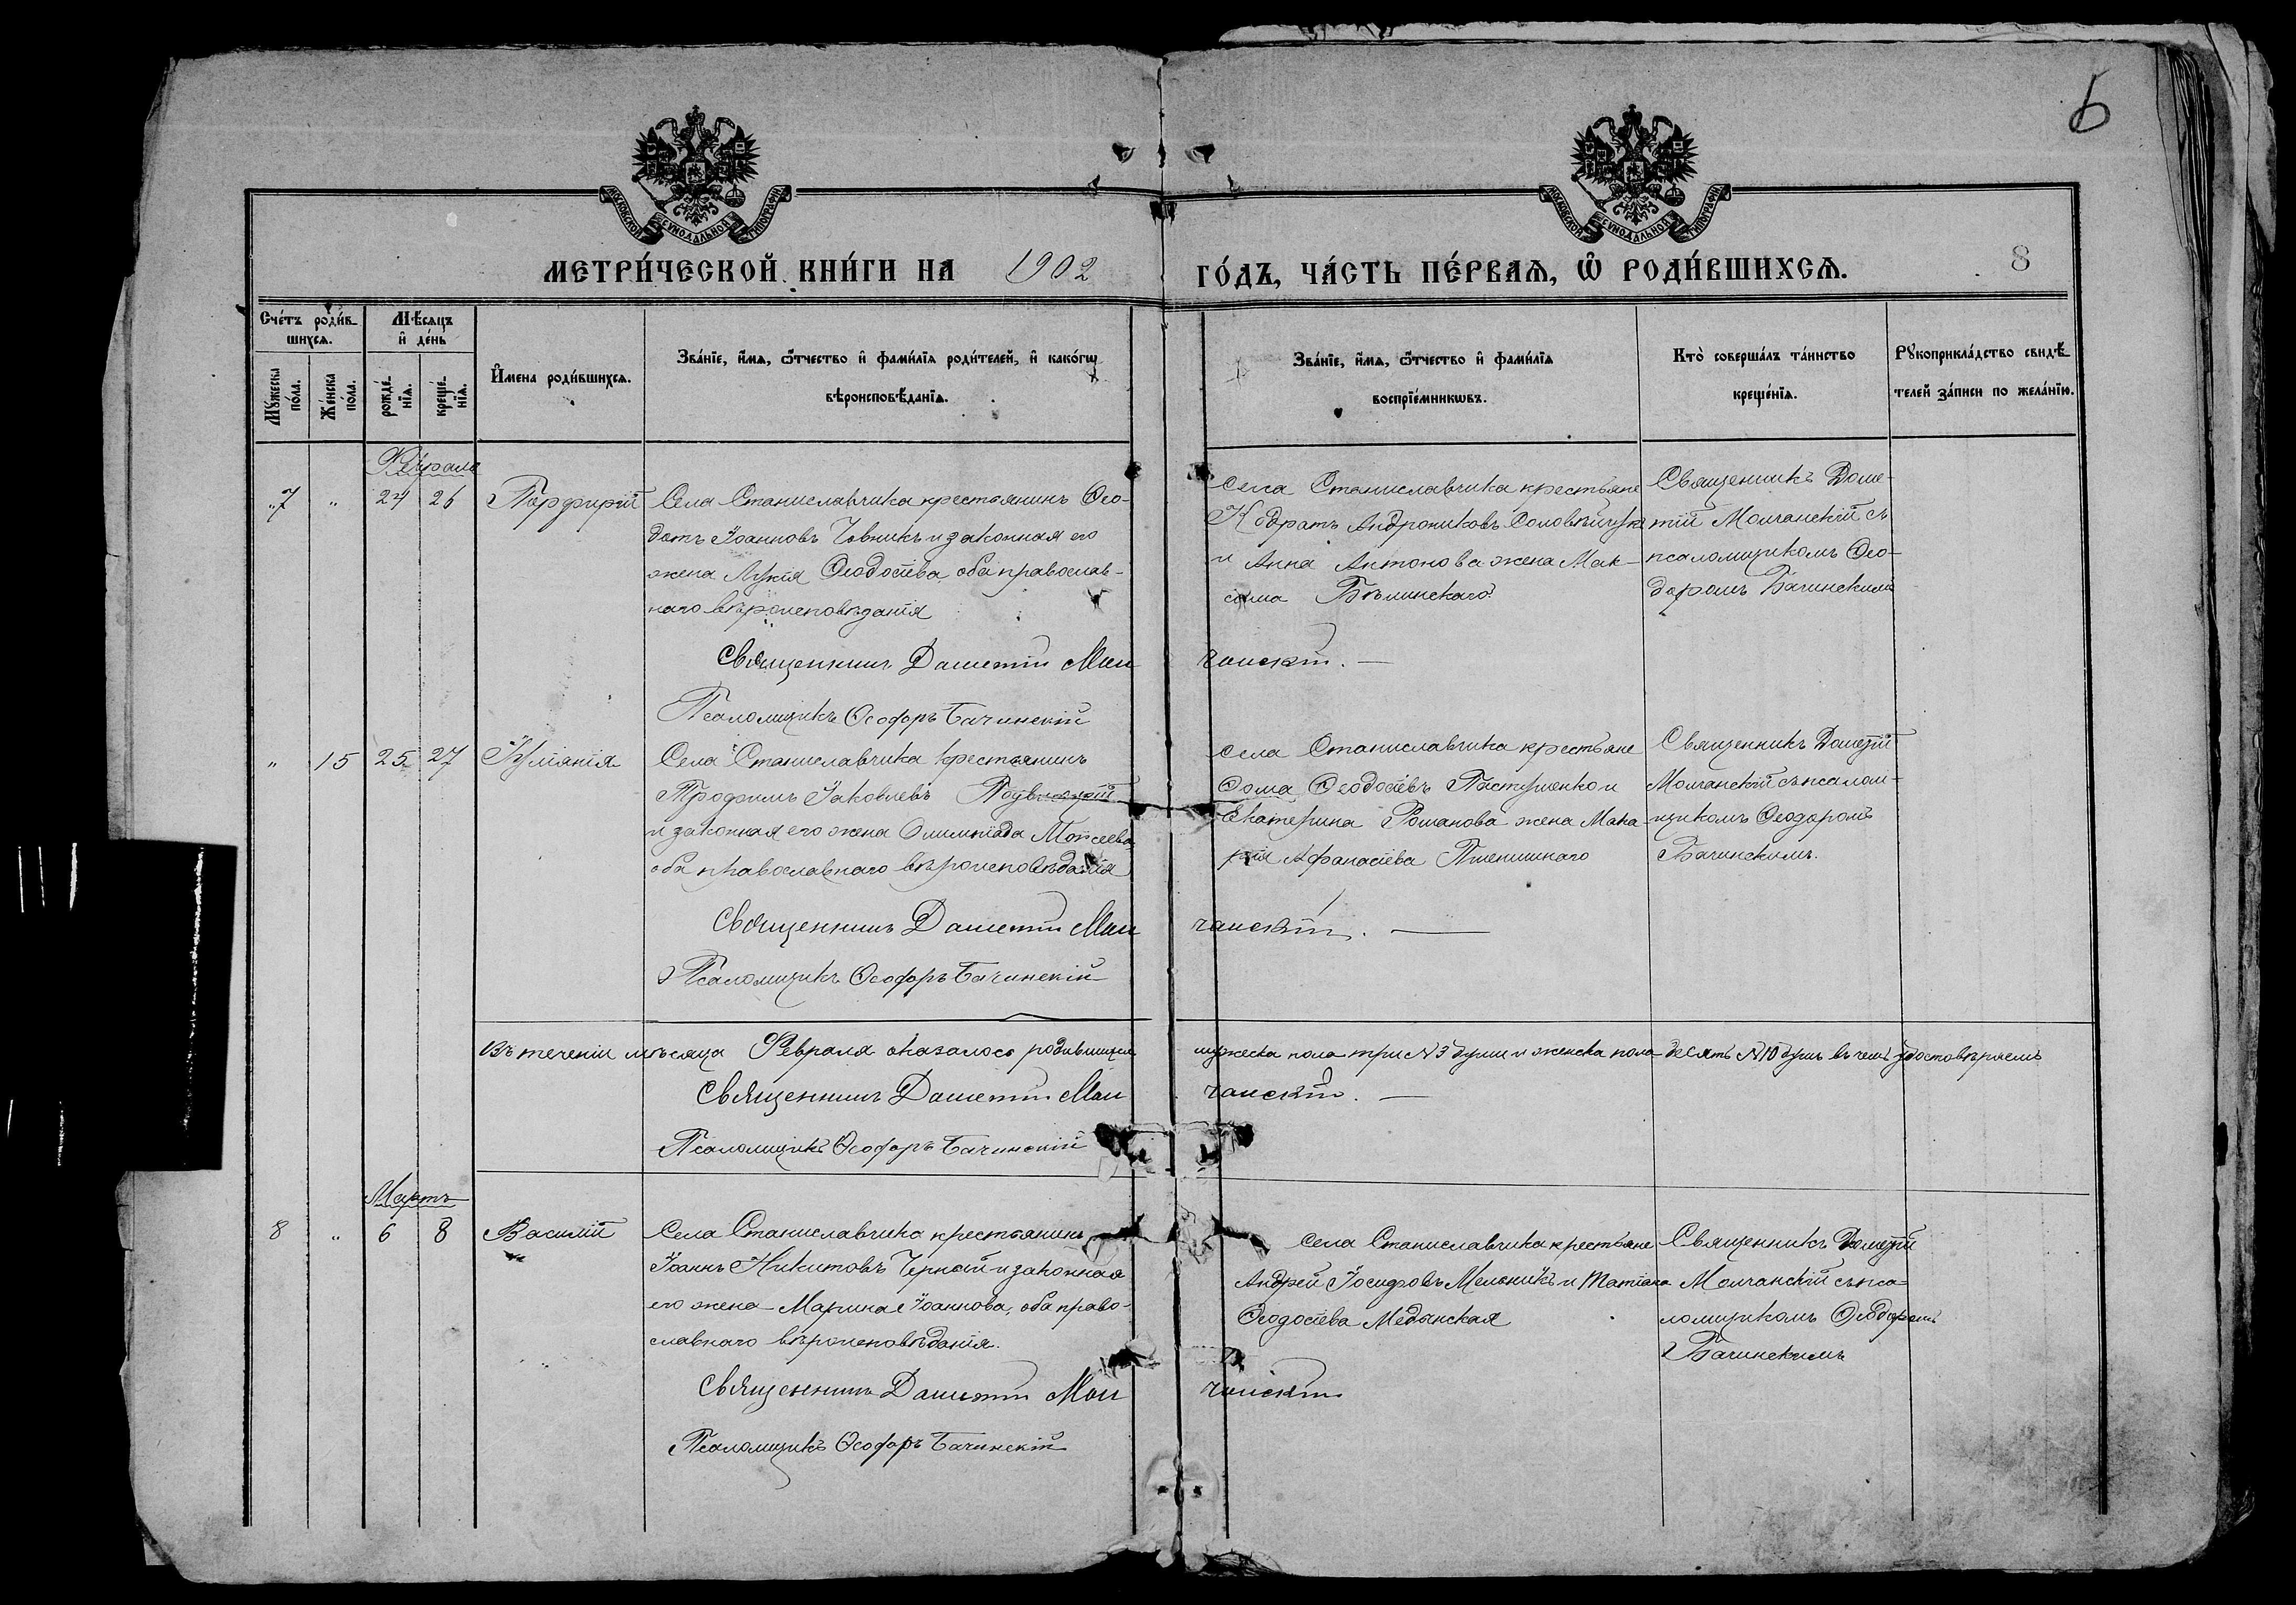 6
МОСКОВСКОЙ СѴНОДАЛЬНОЙ ТИПОГРАФІИ
МОСКОВСКОЙ СѴНОДАЛЬНОЙ ТИПОГРАФІИ
МЕТРИ́ЧЕСКОЙ КНИ́ГИ НА 1902 ГО́ДЪ, ЧА́СТЬ ПЕ́РВАЯ, Ѡ РОДИ́ВШИХСЯ. 8
Сче́тъ роди́в-
шихся.
Мѣсяцъ
и де́нь
Му́жеска
по́ла.
Же́нска
по́ла.
рожде́-
нія.
креще́-
нія.
Имена роди́вшихся.
Зва́ніе, имя, ѻтчество и фами́лія роди́телей, и како́гѡ
вѣроисповѣданія.
Зва́ніе, имя, ѻтчество и фами́лія
воспріе́мникѡвъ.
Кто̀ соверша́лъ та́инство
креще́нія.
Рукоприкла́дство свидѣ-
телей за́писи по жела́нію.
Февраль
7 " 24 26 Порфирій
Села Станиславчика крестьянинъ Ѳео-
дотъ Іоанновъ Човникъ и законная его
жена Лукія Ѳеодосіева оба православ-
наго вѣроисповѣданія
Села Станиславчика крестьяне
Кодратъ Андрониковъ Соловѣйчукъ
и Анна Антонова жена Мак-
сима Бѣлинскаго
Священникъ Доме-
тій Молчанскій съ
псаломщикомъ Ѳео-
доромъ Бачинскимъ
Священникъ Дометій Молчанскій.
Псаломщикъ Ѳеодоръ Бачинскій
" 15 25 27 Іуліанія
Села Станиславчика крестьянинъ
Трофимъ Іаковлевъ
и законная его жена Олимпіада Моисеева
оба православнаго вѣроисповѣданія
Села Станиславчика крестьяне
Ѳома Ѳеодосіевъ Пастушенко и
Екатерина Романова жена Мака-
рія Афанасіева Пшеничнаго
Священникъ Дометій
Молчанскій съ псалом-
щикомъ Ѳеодоромъ
Бачинскимъ.
Священникъ Дометій Молчанскій.
Псаломщикъ Ѳеодоръ Бачинскій
Въ теченіи мѣсяца Февраля оказалось родившихся мужеска пола три № 3 души и женска пола десять № 10 душъ въ чемъ удостовѣряемъ
Священникъ Дометій Молчанскій.
Псаломщикъ Ѳеодоръ Бачинскій
Мартъ
8 " 6 8 Василій
Села Станиславчика крестьянинъ
Іоаннъ Никитовъ Черный и законная
его жена Марина Іоаннова, оба право-
славнаго вѣроисповѣданія.
Села Станиславчика крестьяне
Андрей Іосифовъ Мельникъ и Татіана
Ѳеодосіева Медянская
Священникъ Дометій
Молчанскій съ пса-
ломщикомъ Ѳеодоромъ
Бачинскимъ
Священникъ Дометій Молчанскій
Псаломщикъ Ѳеодоръ Бачинскій